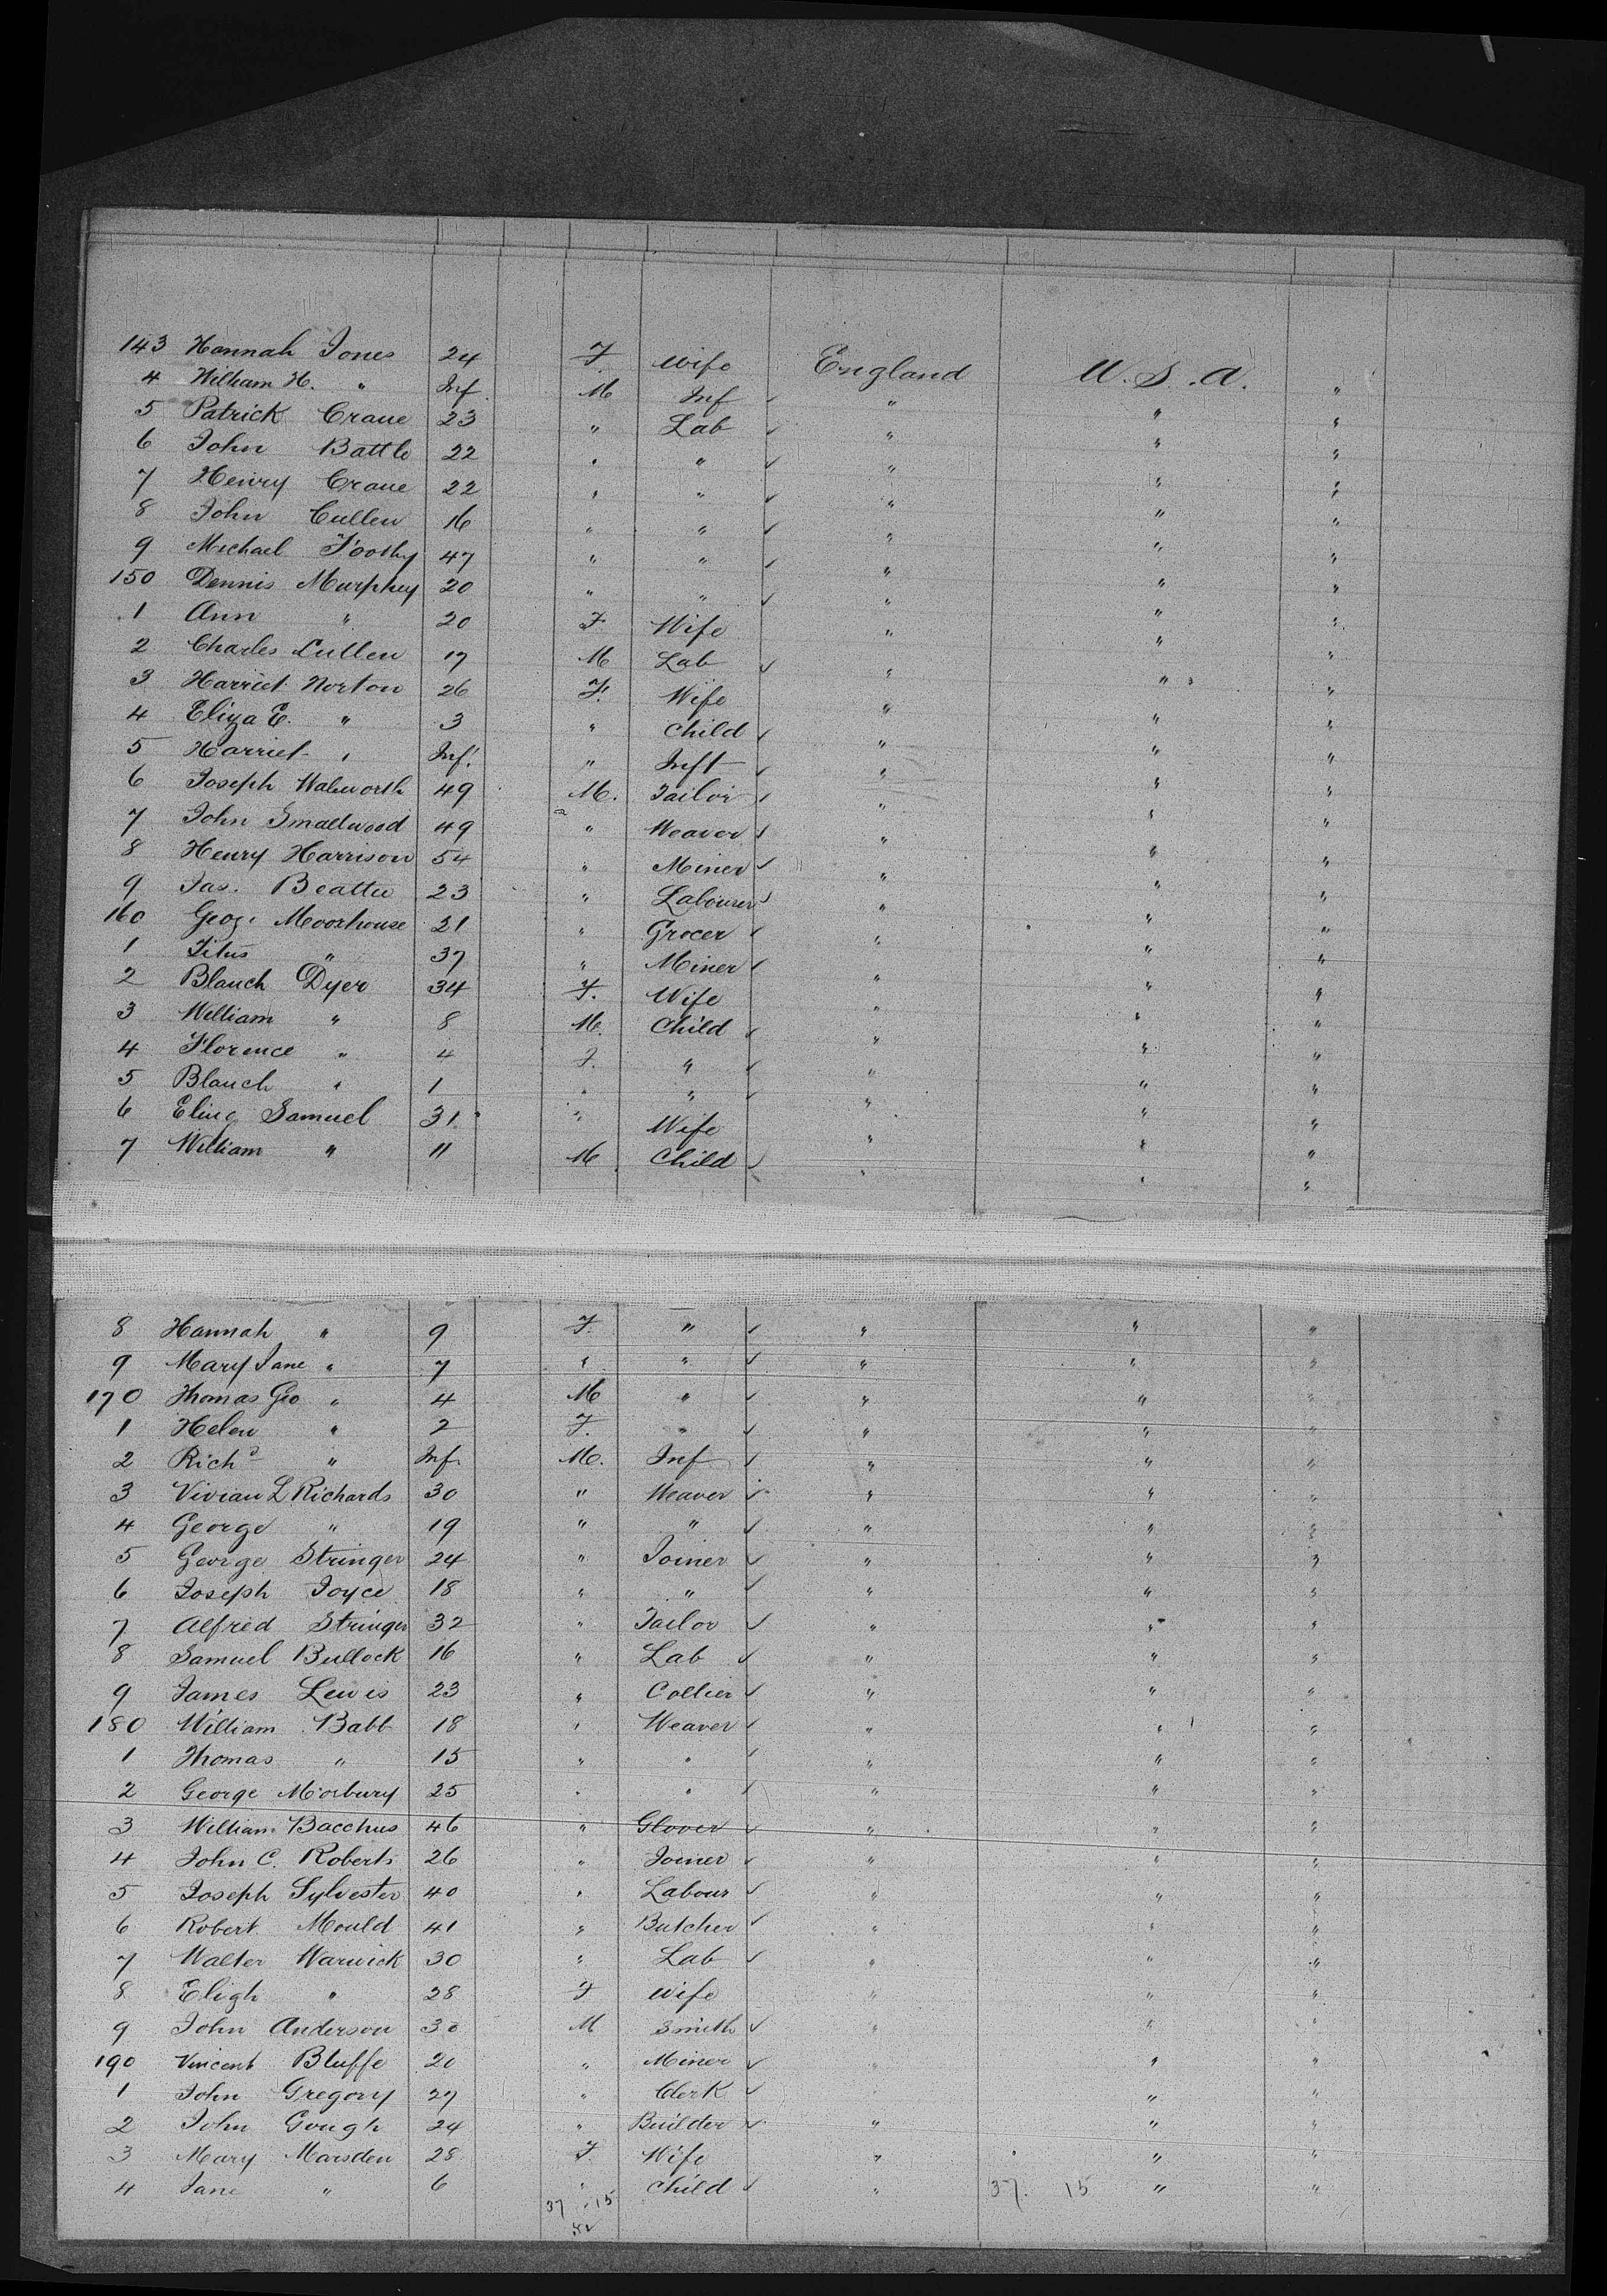 143 Hannah Jones 24 F. Wife England U.S.A. "
4 William H. " Inf. M Inf " " "
5 Patrick Crane 23 " Lab " " "
6 John Battle 22 " " " " "
7 Henry Crane 22 " " " " "
8 John Cullen 16 " " " " "
9 Michael 47 " " " " "
150 Dennis Murphey 20 " " " " "
1 Ann " 20 F Wife " " "
2 Charles Cullen 17 M Lab " " "
3 Harriet Norton 26 F. Wife " " "
4 Eliza E. " 3 " Child " " "
5 Harriet " Inf. " Inft " " "
6 Joseph Walworth 49 M. Tailor " " "
7 John Smallwood 49 " Weaver " " "
8 Henry Harrison 54 " Miner " " "
9 Jas. Beattie 23 " Labourer " " "
160 Geo. Moorhouse 21 " Grocer " " "
1 Titus " 37 " Miner " " "
2 Blanch Dyer 34 F. Wife " " "
3 William " 8 M. Child " " "
4 Florence " 4 F. " " " "
5 Blanch " 1 " " " " "
6 Samuel 31 " Wife " " "
7 William " 11 M. Child " " "
8 Hannah " 9 F. " " " "
9 Mary Jane " 7 " " " " "
170 Thomas Geo " 4 M " " " "
1 Helen " 2 F. " " " "
2 Richd " Inf. M. Inf " " "
3 Vivian L Richards 30 " Weaver " " "
4 George " 19 " " " " "
5 George Stringer 24 " Joiner " " "
6 Joseph Joyce 18 " " " " "
7 Alfred Stringer 32 " Tailor " " "
8 Samuel Bullock 16 " Lab " " "
9 James Lewis 23 " Collier " " "
180 William Babb 18 " Weaver " " "
1 Thomas " 15 " " " " "
2 George Mosbury 25 " " " " "
3 William Bacchus 46 " Glover " " "
4 John C. Roberts 26 " Joiner " " "
5 Joseph Sylvester 40 " Labour " " "
6 Robert Mould 41 " Butcher " " "
7 Walter Warwick 30 " Lab " " "
8 Eligh " 28 F Wife " " "
9 John Anderson 30 M Smith " " "
190 Vincent Bluffe 20 " Miner " " "
1 John Gregory 27 " Clerk " "
2 John Gough 24 " Builder " " "
3 Mary Marsden 28 F. Wife " " "
4 Jane " 6 " Child " 37. 15 " "
37 15